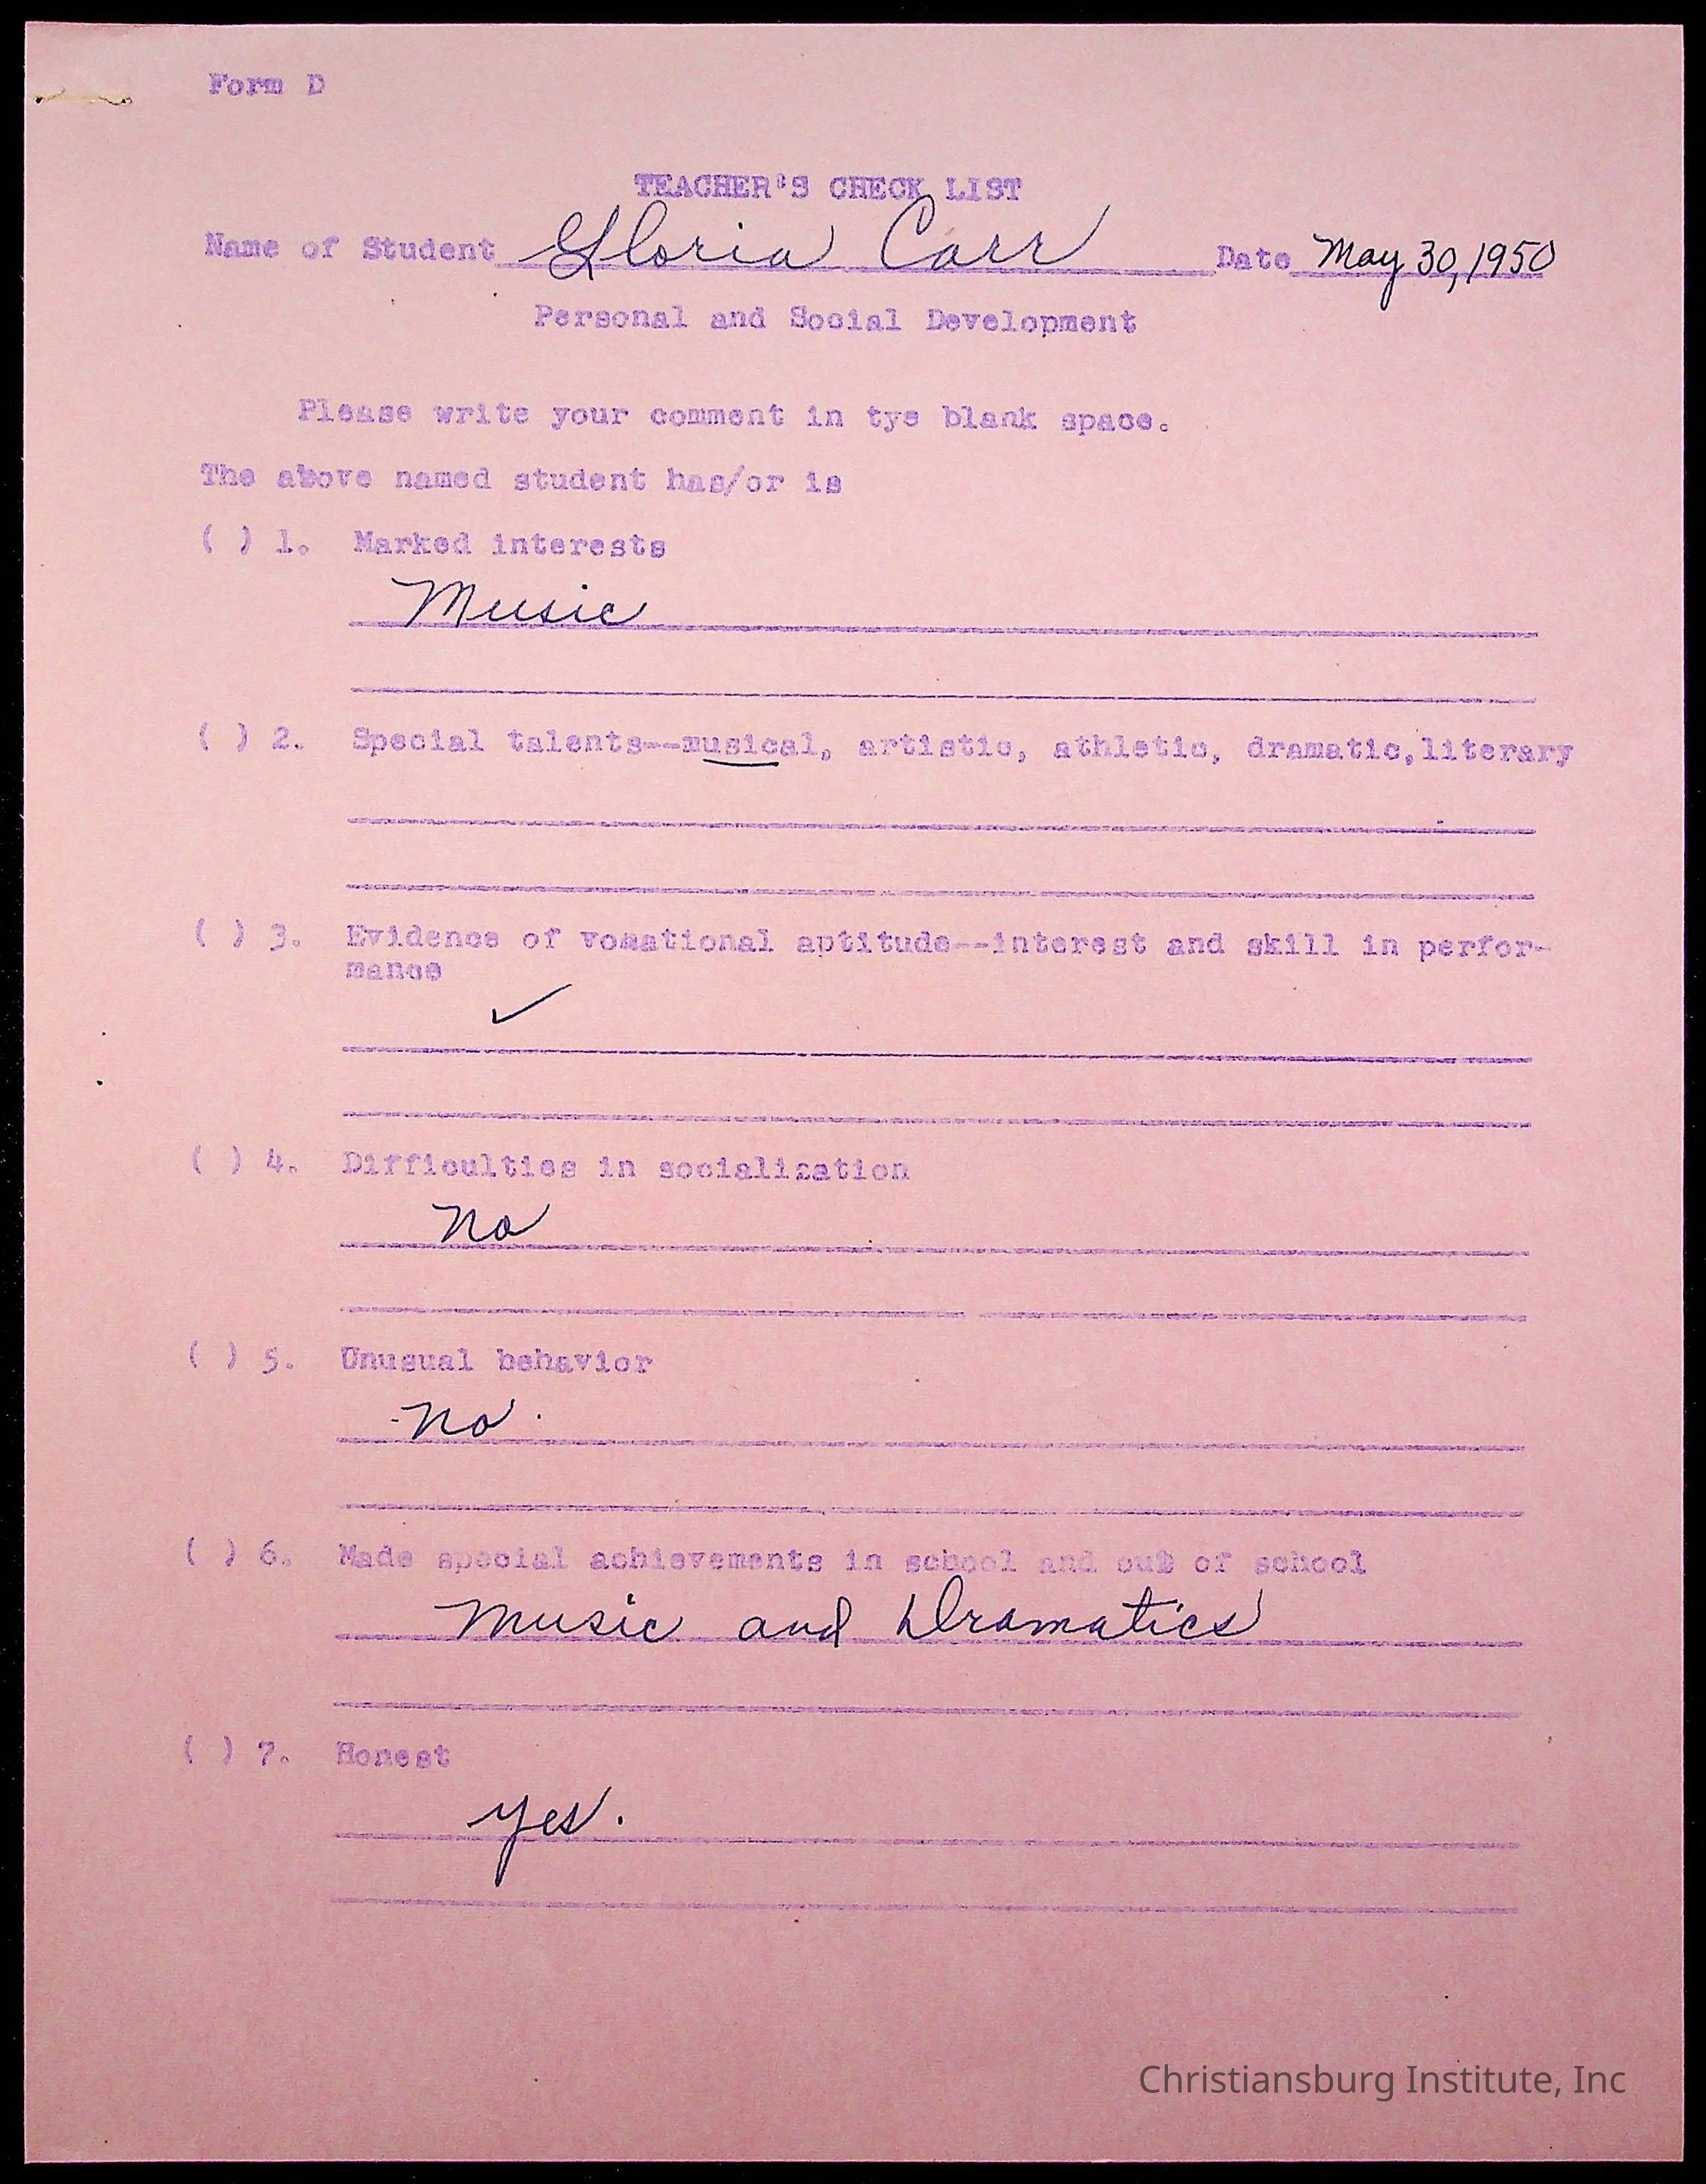 Form D
TEACHER'S CHECK LIST
Name of Student Gloria Carr Date May 30, 1950
Personal and Social Development
Please write your comment in tye blank space.
The above named student has/or is
( ) 1. Marked interests
Music
( ) 2. Special talents--musical, artistic, athletic, dramatic, literary
( ) 3. Evidence of vomational aptitude--interest and skill in perfor-
mance
✓
( ) 4. Difficulties in socialization
No
( ) 5. Unusual behavior
-No.
( ) 6. Made special achievements in school and out of school
Music and Dramatics
( ) 7. Honest
yes.
Christiansburg Institute, Inc